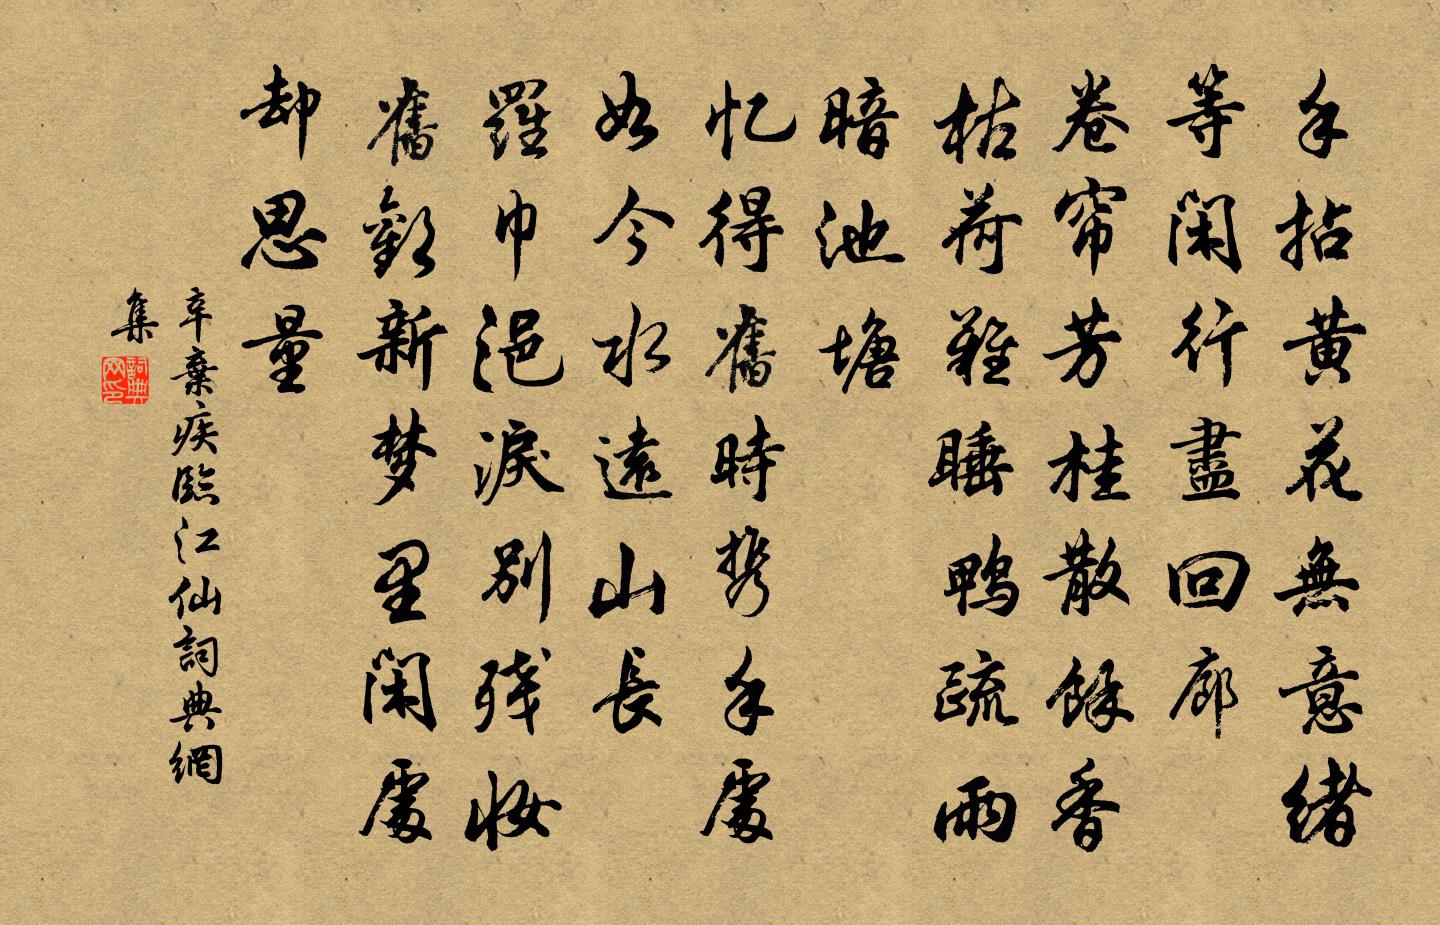 手拈黄花無意緒
等闲行盡回廊
卷帘芳桂散餘香
枯荷難睡鴨疏雨
暗池塘
忆得舊時携手處
如今水遠山長
羅巾浥淚别残妝
舊歡新梦里闲處
却思量
辛棄疾臨江仙詞典網
集
詞典网印